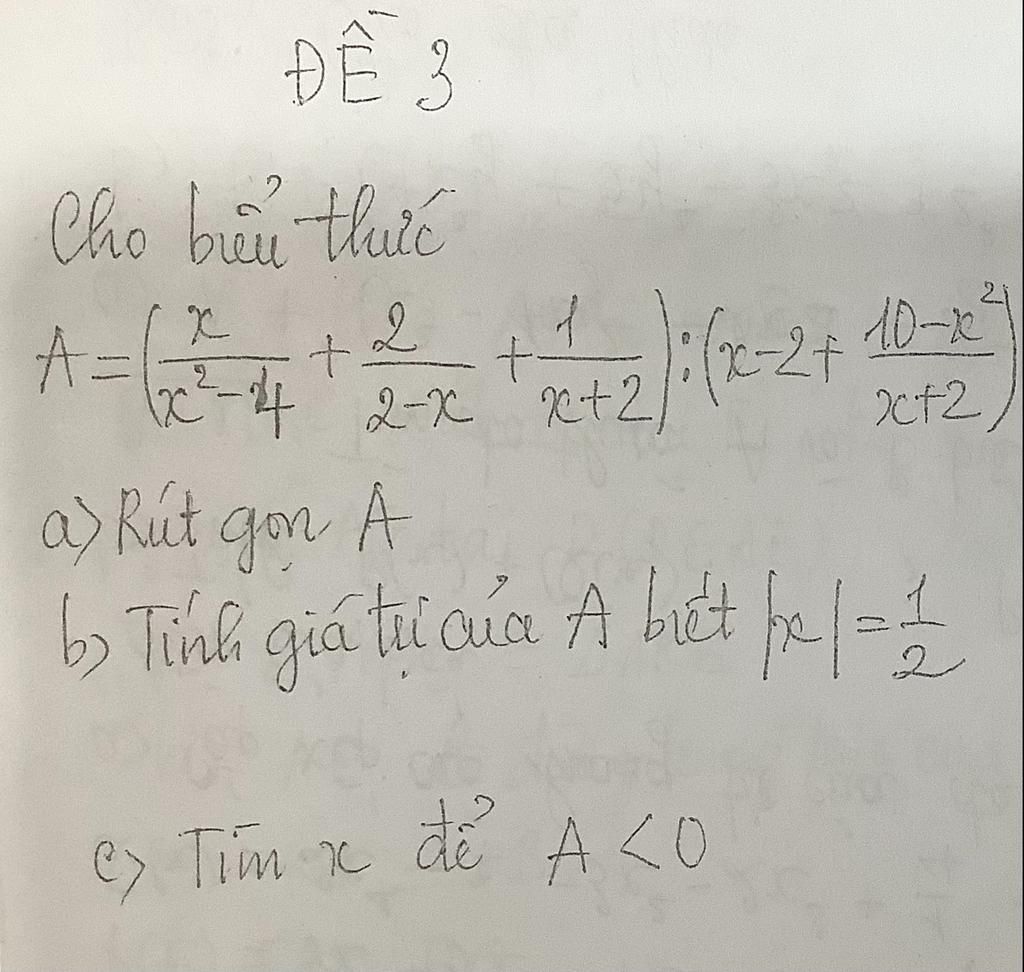 ĐỀ 3
Cho biểu thức
A = (x/(x²-4) + 2/(2-x) + 1/(x+2)) : (x-2 + (10-x²)/(x+2))
a) Rút gọn A
b) Tính giá trị của A biết |x| = 1/2
c) Tìm x để A < 0